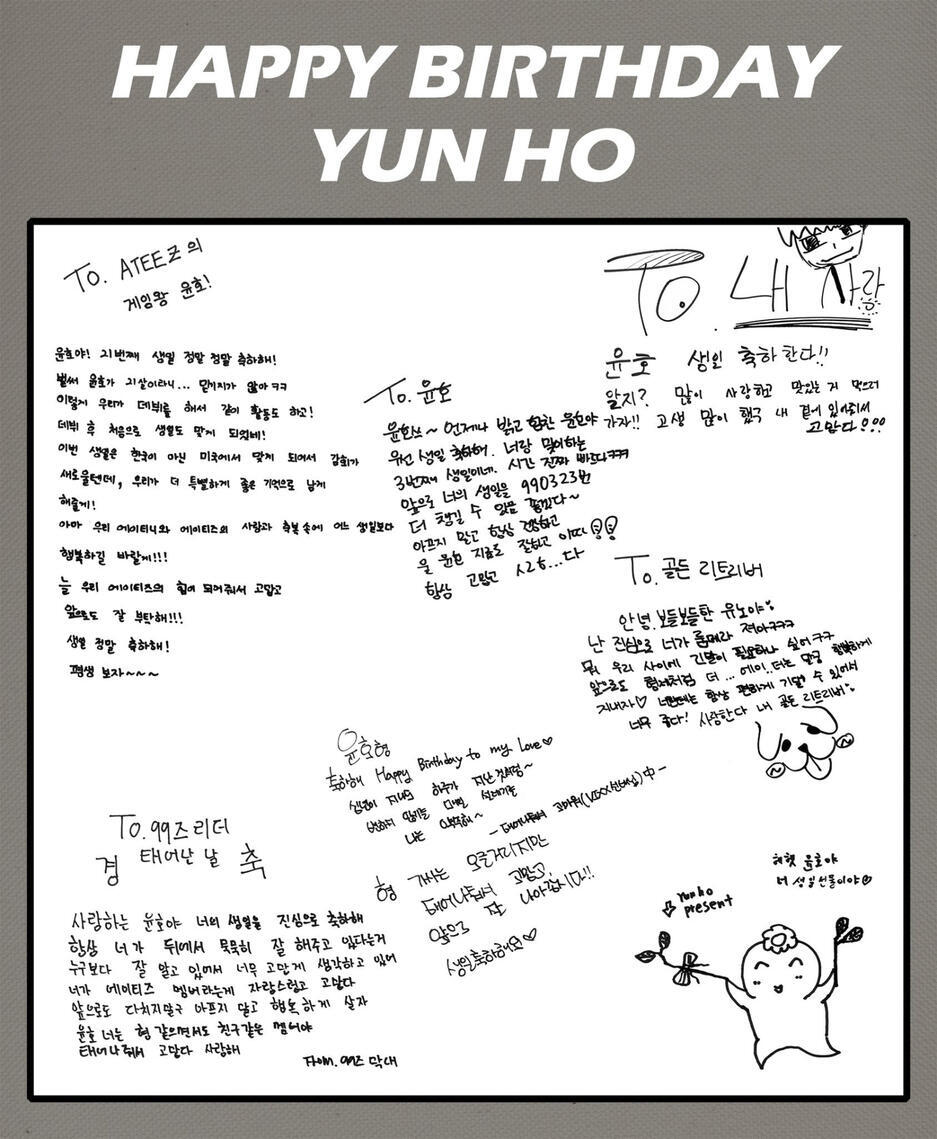 HAPPY BIRTHDAY
YUN HO
To. ATEEZ의
게임왕 윤호!
윤호야! 21번째 생일 정말 정말 축하해!
벌써 윤호가 21살이라니... 믿기지가 않아ㅋㅋ
이렇게 우리가 데뷔를 해서 같이 활동도 하고!
데뷔 후 처음으로 생일도 맞게 되었네!
이번 생일은 한국이 아닌 미국에서 맞게 되어서 감회가
새로울텐데, 우리가 더 특별하게 좋은 기억으로 남게
해줄게!
아마 우리 에이티니와 에이티즈의 사랑과 축복속에 어느 생일보다
행복하길 바랄게!!!
늘 우리 에이티즈의 힘이 되어줘서 고맙고
앞으로도 잘 부탁해!!!
생일 정말 축하해!
평생 보자~~~
To. 내 사랑
윤호 생일 축하한다!!
알지? 많이 사랑하고 맛있는 거 먹으러
가자!! 고생 많이 했구 내 곁에 있어줘서
고맙다!!!
To. 윤호
윤호쓰~ 언제나 밝고 힘찬 윤호야
우선 생일 축하해. 너랑 맞이하는
3번째 생일이네. 시간 진짜 빠르다ㅋㅋㅋ
앞으로 너의 생일을 990323번
더 챙길 수 있음 좋겠다~
아프지 말고 항상 건강하고
울 윤호 지금도 잘하고 이따
항상 고맙고 사랑...다
To. 골든 리트리버
안녕. 보들보들한 유노야
난 진심으로 너가 룸메라 져아ㅋㅋㅋ
뭐 우리 사이에 긴말이 필요하나 싶어ㅋㅋ
앞으로도 형제처럼 더 ... 에이..더는 말구 행복하게
지내자♡ 너한테는 항상 편하게 기댈 수 있어서
너무 좋다! 사랑한다 내 골든 리트리버
윤호형
축하해 Happy Birthday to my Love♡
생일이 지나도 하루가 지난 것처럼~
나는
- 태어나줘서 고마워(VIXX선배님) 中 -
형 가사는 오글거리지만
태어나줘서 고맙고,
앞으로 잘 나아갑시다!!
생일축하해요♡
To. 99즈 리더
경 태어난 날 축
사랑하는 윤호야 너의 생일을 진심으로 축하해
항상 너가 뒤에서 묵묵히 잘 해주고 있다는거
누구보다 잘 알고 있어서 너무 고맙게 생각하고 있어
너가 에이티즈 멤버라는게 자랑스럽고 고맙다
앞으로도 다치지말구 아프지 말고 행복하게 살자
윤호 너는 형 같으면서도 친구같은 멤버야
태어나줘서 고맙다 사랑해
From. 99즈 막내
헤헷 윤호야
너 생일선물이야♡
Yunho
present